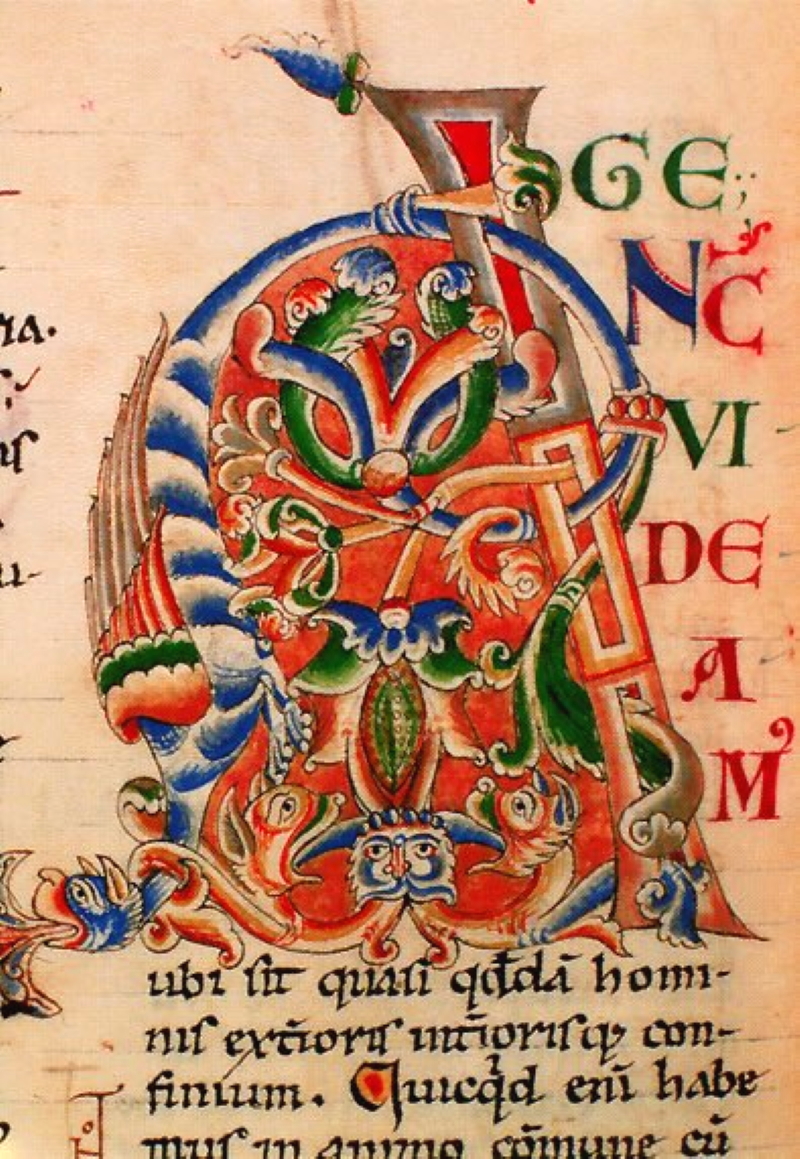 AGE;
NC̄
VI
DE
A
Mꝰ
ubi sit quasi qđdā homi-
nis ext̄ioris int̄iorisq; con-
finium. Quicq̇d enī habe
mus in animo cōmune cū